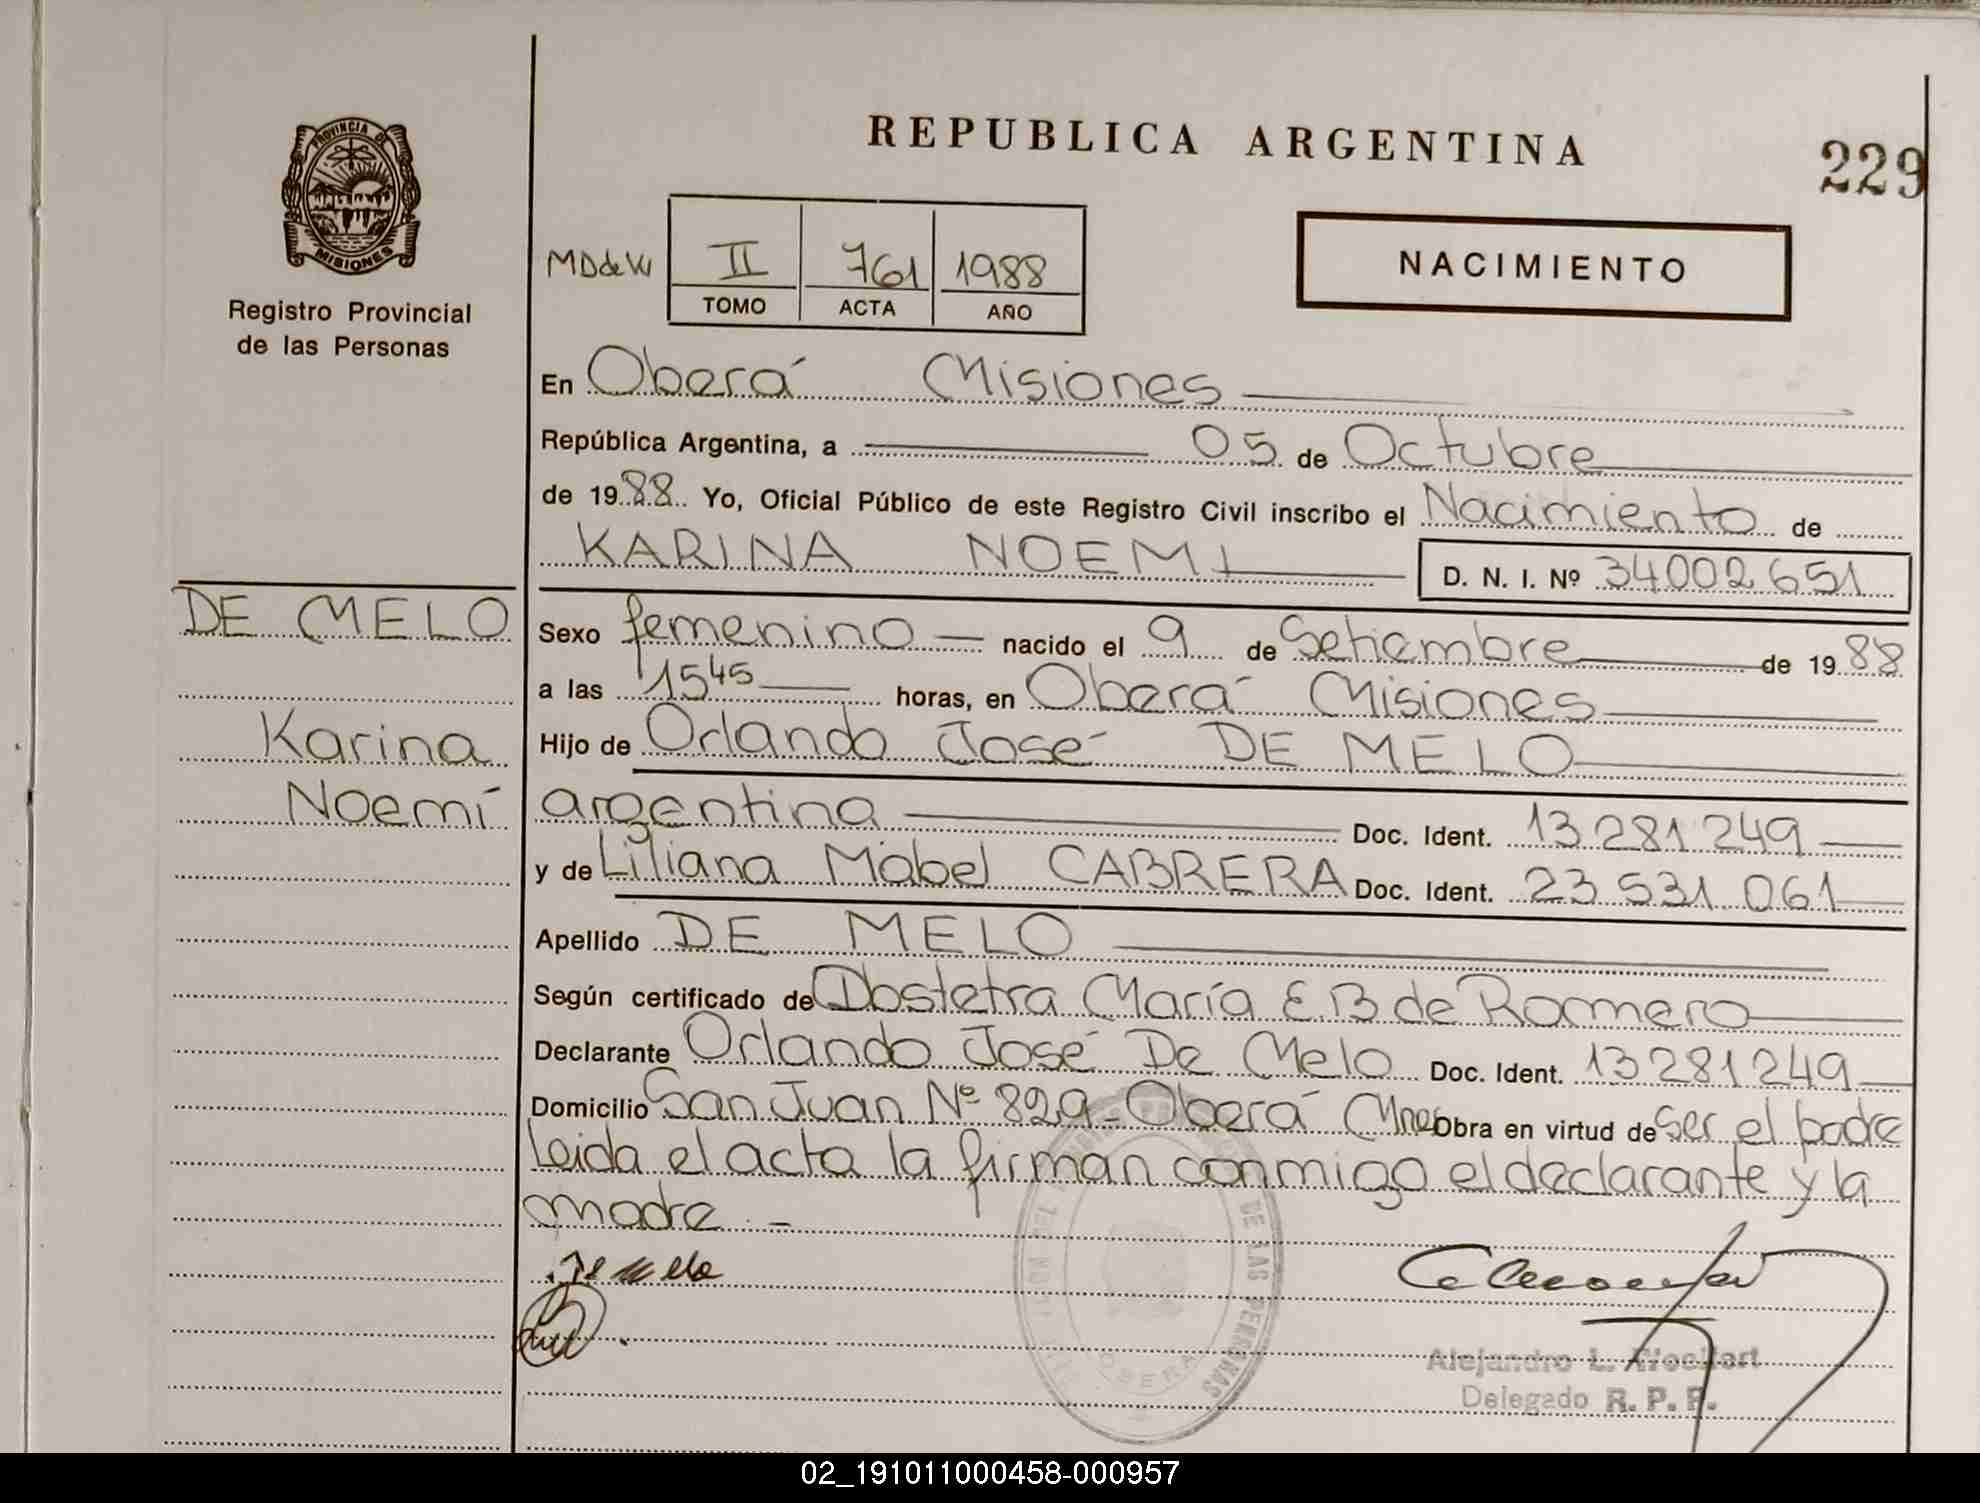 REPUBLICA ARGENTINA
229
PROVINCIA DE
MISIONES
Registro Provincial
de las Personas
II 761 1988
TOMO ACTA AÑO
NACIMIENTO
En Oberá Misiones
República Argentina, a 05 de Octubre
de 1988 Yo, Oficial Público de este Registro Civil inscribo el Nacimiento de
KARINA NOEMI D. N. I. Nº 34.002.651
DE MELO
Karina
Noemí
Sexo femenino nacido el 9 de Setiembre de 1988
a las 15 45 horas, en Oberá Misiones
Hijo de Orlando José DE MELO
argentina Doc. Ident. 13.281.249
y de Liliana Mabel CABRERA Doc. Ident. 23.531.061
Apellido DE MELO
Según certificado de Obstetra María E.B de Romero
Declarante Orlando José De Melo Doc. Ident. 13281249
Domicilio San Juan Nº 829 - Oberá Mnes Obra en virtud de ser el padre
Leida el acta la firman conmigo el declarante y la
madre. -
De Melo
DE LAS PERSONAS
OBERA
Alejandro L.
Delegado R. P. P.
02_191011000458-000957